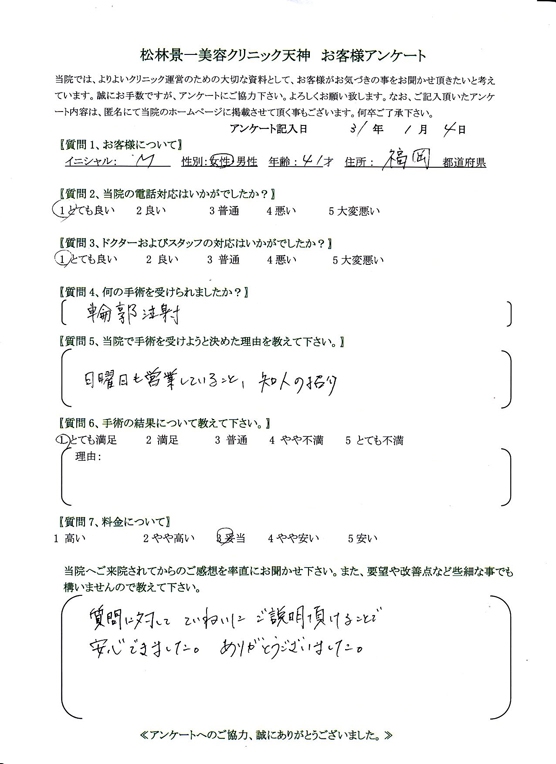 松林景一美容クリニック天神 お客様アンケート
当院では、よりよいクリニック運営のための大切な資料として、お客様がお気づきの事をお聞かせ頂きたいと考え
ています。誠にお手数ですが、アンケートにご協力下さい。よろしくお願い致します。なお、ご記入頂いたアンケ
ート内容は、匿名にて当院のホームページに掲載させて頂く事もございます。何卒ご了承下さい。
アンケート記入日 31年 1月 4日
〖質問1、お客様について〗
イニシャル: M 性別:女性・男性 年齢:41才 住所:福岡 都道府県
〖質問2、当院の電話対応はいかがでしたか?〗
1とても良い 2良い 3普通 4悪い 5大変悪い
〖質問3、ドクターおよびスタッフの対応はいかがでしたか?〗
1とても良い 2 良い 3 普通 4悪い 5大変悪い
〖質問4、何の手術を受けられましたか?〗
輪郭注射
〖質問5、当院で手術を受けようと決めた理由を教えて下さい。〗
日曜日も営業していること、知人の紹介
〖質問6、手術の結果について教えて下さい。〗
1とても満足 2 満足 3 普通 4 やや不満 5 とても不満
理由:
〖質問7、料金について〗
1 高い 2やや高い 3妥当 4やや安い 5安い
当院へご来院されてからのご感想を率直にお聞かせ下さい。また、要望や改善点など些細な事でも
構いませんので教えて下さい。
質問に対して ていねいに ご説明頂けることで
安心できました。 ありがとうございました。
≪アンケートへのご協力、誠にありがとうございました。≫